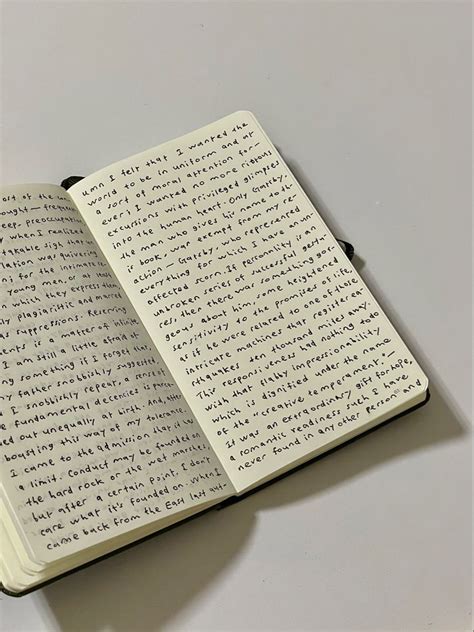 ort of the in
ought — freque
eep, preoccupatio
y when I realize
takable sign that a
lation was quivering
on for the intimate
young men, or at
n which they express the
ly plagiaristic and marred
us suppressions. Reserving
ents is a matter of infinite
I am still a little afraid of
ing something if I forget that
y father snobbishly suggested
I snobbishly repeat, a sense
fundamental decencies is parcel
ed out unequally at birth. And, after
boasting this way of my tolerance,
I came to the admission that it
a limit. Conduct may be founded on
the hard rock or the wet marshes
but after a certain point, I don't
care what it's founded on. When I
came back from the East last aut-
umn I felt that I wanted the
world to be in uniform and at
a sort of moral attention for-
ever; I wanted no more riotous
excursions with privileged glimpses
into the human heart. Only Gatsby,
the man who gives his name to th-
is book, was exempt from my re-
action — Gatsby, who represented
everything for which I have an un
affected scorn. If personality is an
unbroken series of successful gestu-
res, then there was something gor-
geous about him, some heightened
sensitivity to the promises of life,
as if he were related to one of those
intricate machines that register ear-
thquakes ten thousand miles away.
This responsiveness had nothing to do
with that flabby impressionability
which is dignified under the name
of the "creative temperament," —
It was an extraordinary gift for hope,
a romantic readiness such I have
never found in any other person and